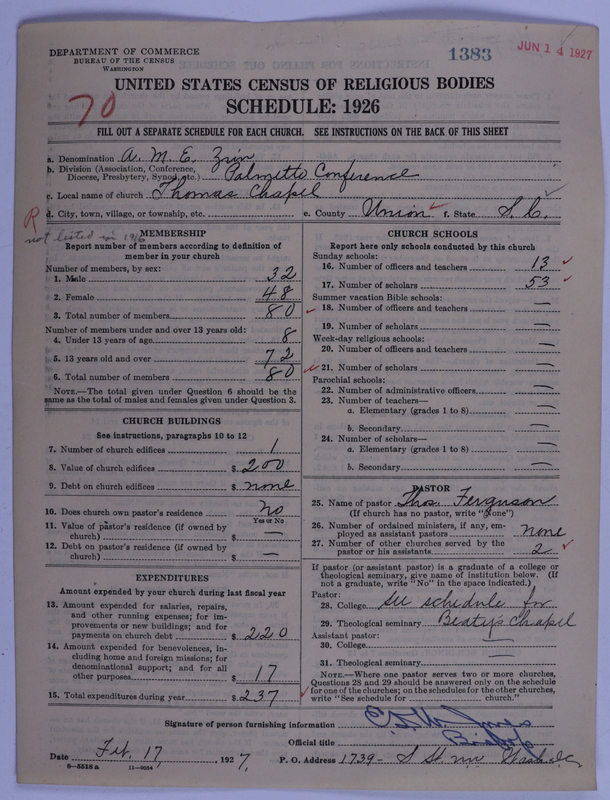 DEPARTMENT OF COMMERCE
BUREAU OF THE CENSUS
WASHINGTON
1383
JUN 14 1927
UNITED STATES CENSUS OF RELIGIOUS BODIES
SCHEDULE: 1926
70
FILL OUT A SEPARATE SCHEDULE FOR EACH CHURCH. SEE INSTRUCTIONS ON THE BACK OF THIS SHEET
a. Denomination A. M. E. Zion
b. Division (Association, Conference, Diocese, Presbytery, Synod, etc.) Palmetto Conference
c. Local name of church Thomas Chapel
d. City, town, village, or township, etc. e. County Union f. State S. C.
R
not listed in 1916
MEMBERSHIP
Report number of members according to definition of
member in your church
Number of members, by sex:
1. Male 32
2. Female 48
3. Total number of members 80
Number of members under and over 13 years old:
4. Under 13 years of age 8
5. 13 years old and over 72
6. Total number of members 80
NOTE.—The total given under Question 6 should be the
same as the total of males and females given under Question 3.
CHURCH BUILDINGS
See instructions, paragraphs 10 to 12
7. Number of church edifices 1
8. Value of church edifices $ 200
9. Debt on church edifices $ none
10. Does church own pastor's residence No
Yes or No
11. Value of pastor's residence (if owned by
church) $ —
12. Debt on pastor's residence (if owned by
church) $ —
EXPENDITURES
Amount expended by your church during last fiscal year
13. Amount expended for salaries, repairs,
and other running expenses; for im-
provements or new buildings; and for
payments on church debt $ 220
14. Amount expended for benevolences, in-
cluding home and foreign missions; for
denominational support; and for all
other purposes $ 17
15. Total expenditures during year $ 237
CHURCH SCHOOLS
Report here only schools conducted by this church
Sunday schools:
16. Number of officers and teachers 13
17. Number of scholars 53
Summer vacation Bible schools:
18. Number of officers and teachers —
19. Number of scholars —
Week-day religious schools:
20. Number of officers and teachers —
21. Number of scholars —
Parochial schools:
22. Number of administrative officers —
23. Number of teachers—
a. Elementary (grades 1 to 8) —
b. Secondary —
24. Number of scholars—
a. Elementary (grades 1 to 8) —
b. Secondary —
PASTOR
25. Name of pastor Thos. Ferguson
(If church has no pastor, write "None")
26. Number of ordained ministers, if any, em-
ployed as assistant pastors none
27. Number of other churches served by the
pastor or his assistants 2
If pastor (or assistant pastor) is a graduate of a college or
theological seminary, give name of institution below. (If
not a graduate, write "No" in the space indicated.)
Pastor:
28. College see schedule for
29. Theological seminary Beatys Chapel
Assistant pastor:
30. College —
31. Theological seminary —
NOTE.—Where one pastor serves two or more churches,
Questions 28 and 29 should be answered only on the schedule
for one of the churches; on the schedules for the other churches,
write "See schedule for church."
Signature of person furnishing information
Official title Bishop
Date Feb. 17, 1927, P. O. Address 1739- S St. nw
8-5518a 11-9054